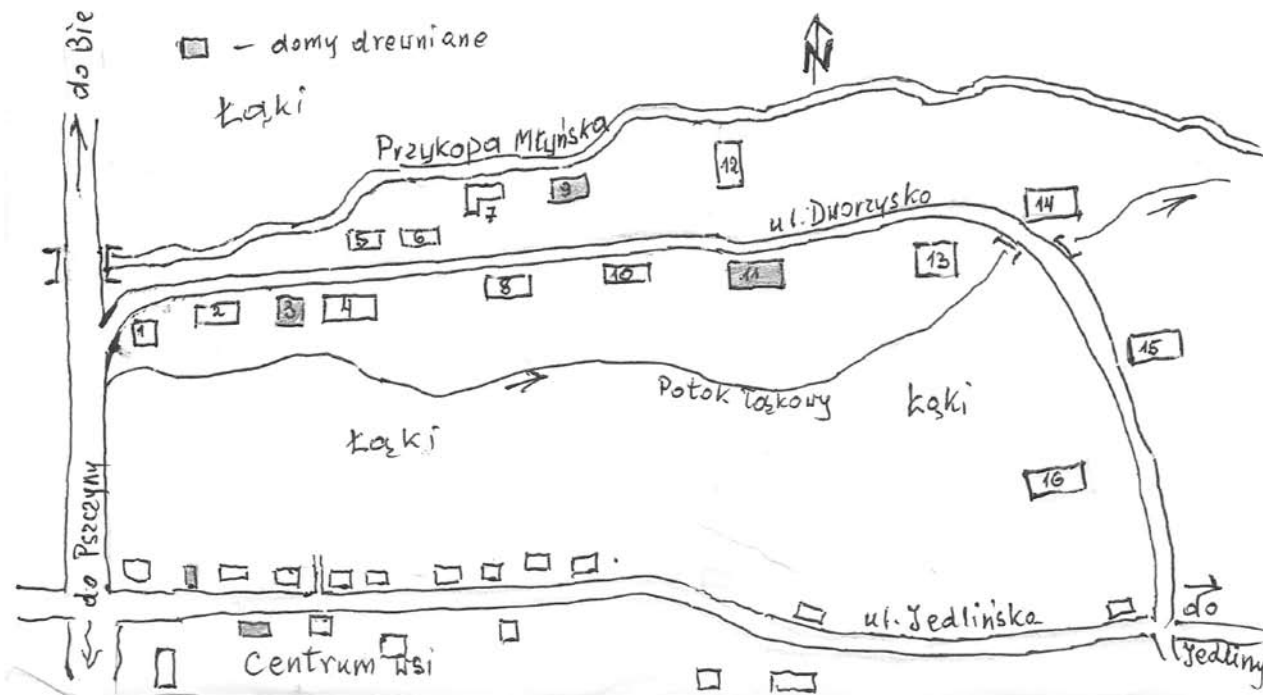 do Bie
- domy drewniane
N
Łąki
Przykopa Młyńska
12
9
7
ul. Dworzysko
14
5
6
13
10
11
8
1
2
3
4
15
Potok Łąkowy
Łąki
Łąki
do Pszczyny
16
ul. Jedlińska
do
Jedliny
Centrum wsi